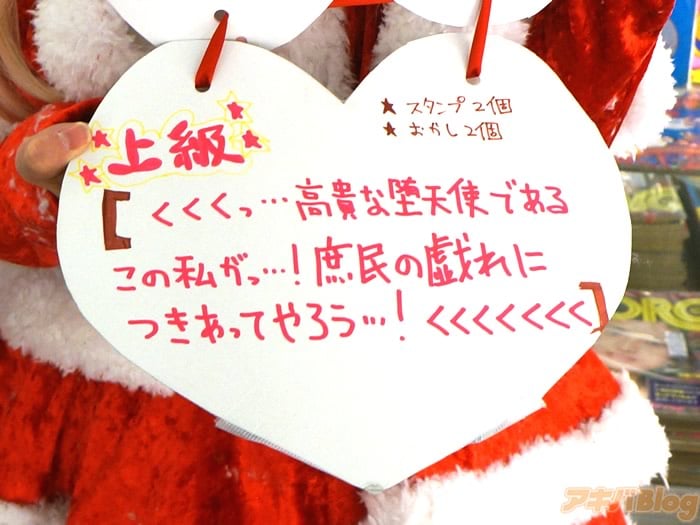 ★上級★
★スタンプ2個
★おかし2個
[くくくっ…高貴な堕天使である
この私がっ…!庶民の戯れに
つきあってやろう…!くくくくくくく]
ORC
アキバBlog